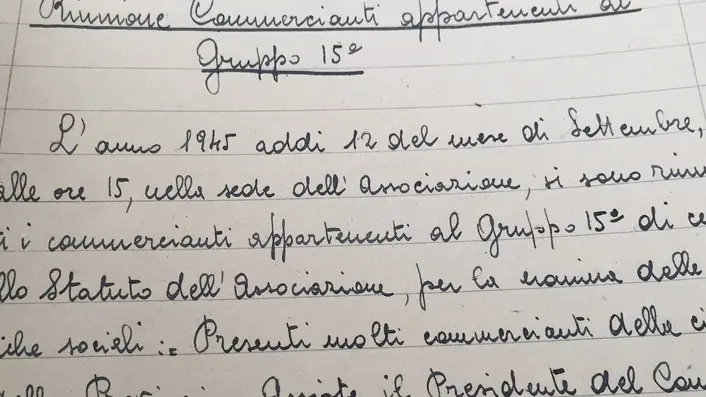 Riunione Commercianti appartenenti al
Gruppo 15º
L'anno 1945 addi 12 del mese di Settembre,
alle ore 15, nella sede dell'Associazione, si sono riuni
i i commercianti appartenenti al Gruppo 15º di c
llo Statuto dell'Associazione, per la nomina delle
iche sociali := Presenti molti commercianti della ci
il Presidente del Com